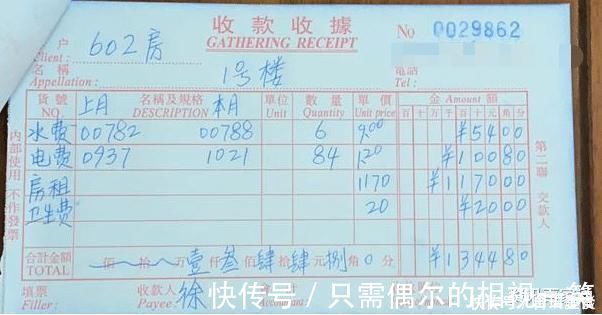 收款收據 No 0029862
GATHERING RECEIPT
户 602房
Client:
名稱 1号楼 電話
Appellation: Tel:
貨號 上月 名稱及規格 本月 單位 數量 單價 金 Amount 額
NO DESCRIPTION Unit Quantity Unit price 百十万千百十元角分
水费 00782 00788 6 9.00 ¥5400
电费 0937 1021 84 1.20 ¥10080
房租 1170 ¥117000
卫生费 20 ¥2000
合計金額 佰 拾 万 壹仟 叁佰 肆拾 肆元 捌角 0分 ¥134480
TOTAL
填票 收款人 徐
Filler: Payee:
内部使用 不作發票
第二聯 交款人
快传号 / 只需偶尔的相视一笑